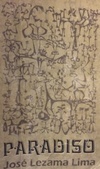 PARADISO
José Lezama Lima